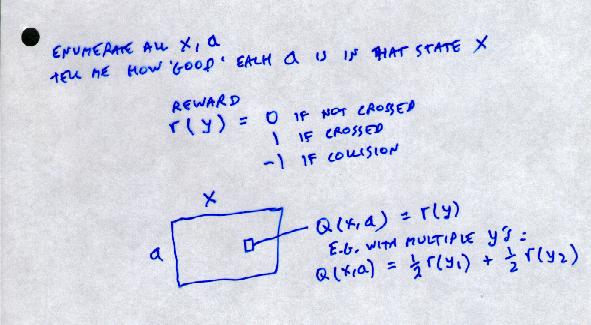 ENUMERATE ALL X, a
TELL ME HOW 'GOOD' EACH a IS IN THAT STATE X
REWARD
r(y) = 0 IF NOT CROSSED
1 IF CROSSED
-1 IF COLLISION
X
a
Q(x,a) = r(y)
E.G. WITH MULTIPLE y's:
Q(x,a) = 1/2 r(y1) + 1/2 r(y2)